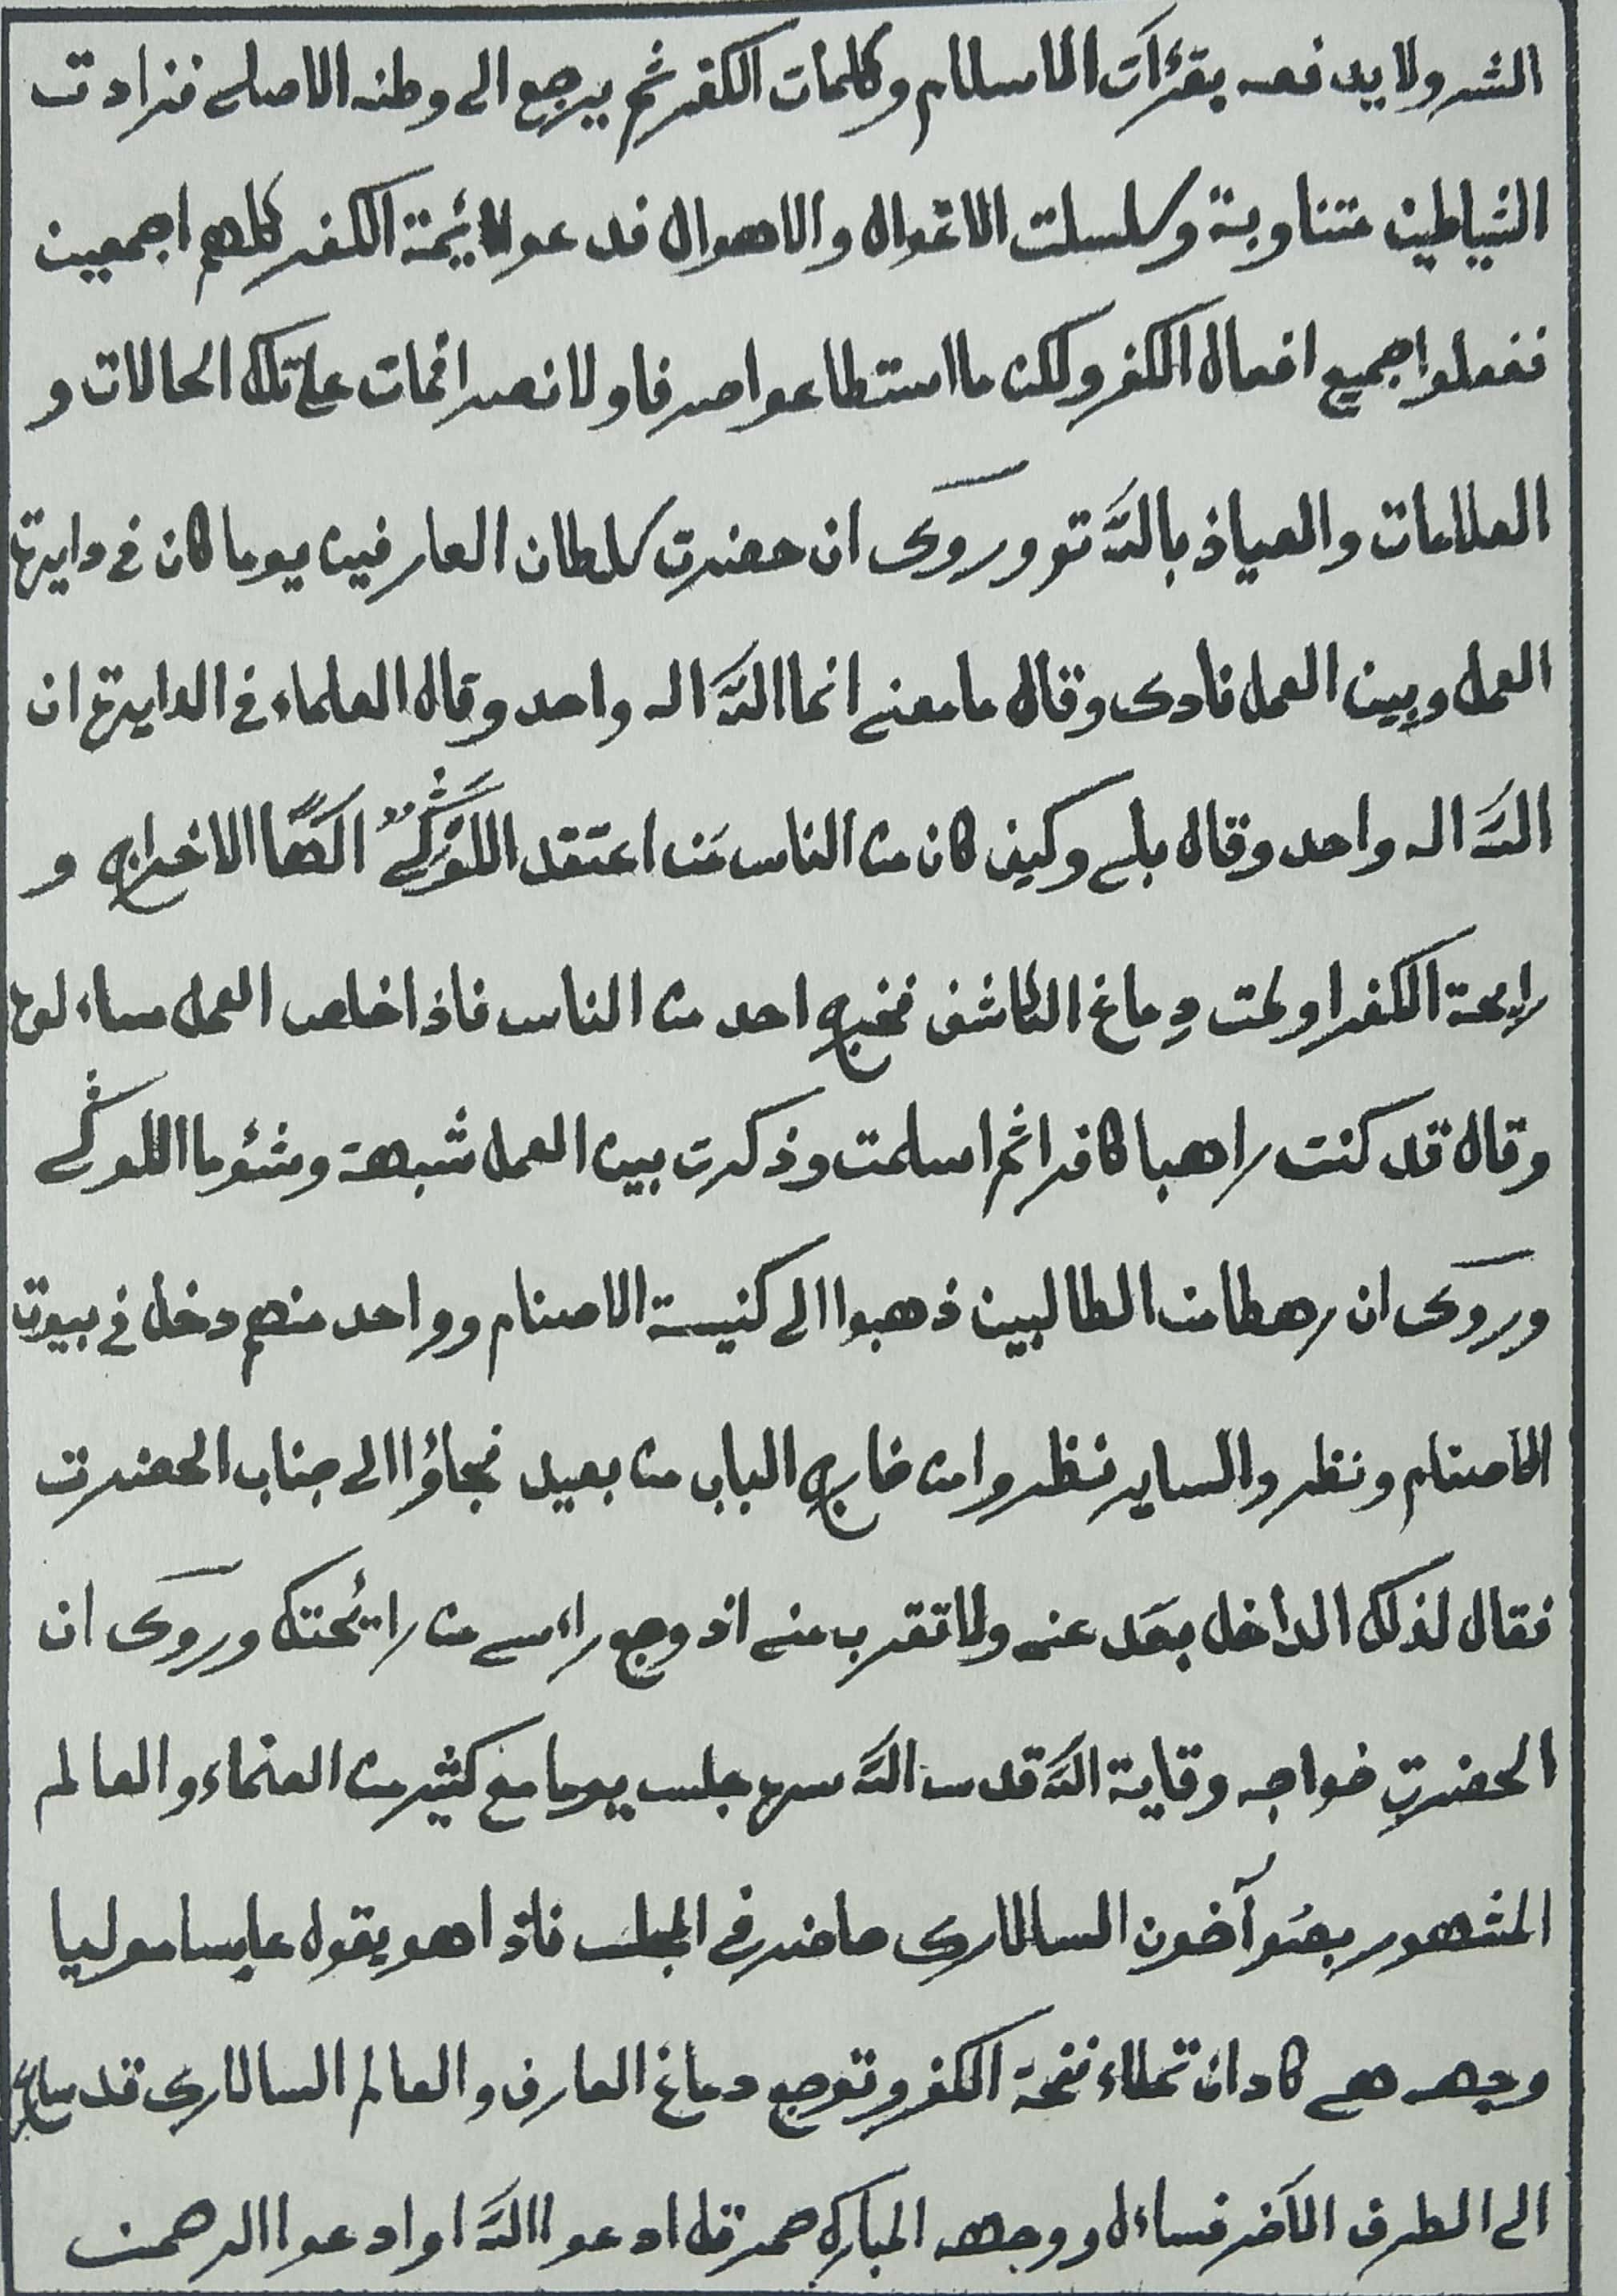 الشر ولا يدفعه بقرٰات الاسلام وكلمات الكفر ثم يرجع الى وطنه الاصلے فزادت
الشياطين متناوبة وسلسلت الاغوال والاهوال فدعولائمة الكفر كلهم اجمعين
ففعلوا جميع افعال الكفر ولكن ما استطاعوا صرفا ولا نصرا فمات علے تلك الحالات و
العلامات والعياذ باللّٰه تع وروى ان حضرت سلطان العارفين يوما كان فى دايرة
العمل وبين العمل نادى وقال ما معنے انما اللّٰه اله واحد وقال العلماء فى الدايرة ان
اللّٰه اله واحد وقال بلے وكيف كان من الناس مَن اعتقد اللَوشَكے الٰهًا الا خراج و
رايحة الكفر اولحت دماغ الكاشف فخرج احد من الناس فاذا خلص العمل ساءلوه
وقال قد كنت راهبا كافرا ثم اسلمت وذكرت بين العمل شبهة وشئوما اللوشكے
وروى ان رهطا من الطالبين ذهبوا الى كنيسة الاصنام وواحد منهم دخل فى بيوت
الاصنام ونظر والساير نظروا من خارج الباب من بعيد فجاؤا الى جناب الحضرت
فقال لذلك الداخل بعَد عنے ولا تقرب منے اذ وجع راءسے من رائحتك وروى ان
الحضرت خواجه وقاية اللّٰه قدس اللّٰه سره جلس يوما مع كثير من العلماء والعالم
المشهور آخون السالارى حاضر فى المجلس فاذا هو يقول عليسا موليا
وجهه هے كاد ان تملاء نفحة الكفر وتوجع دماغ العارف والعالم السالارى قد
الى الطرف الآخر فساءل ووجهه المبارك حمر قل ادعوا اللّٰه او ادعوا الرحمن